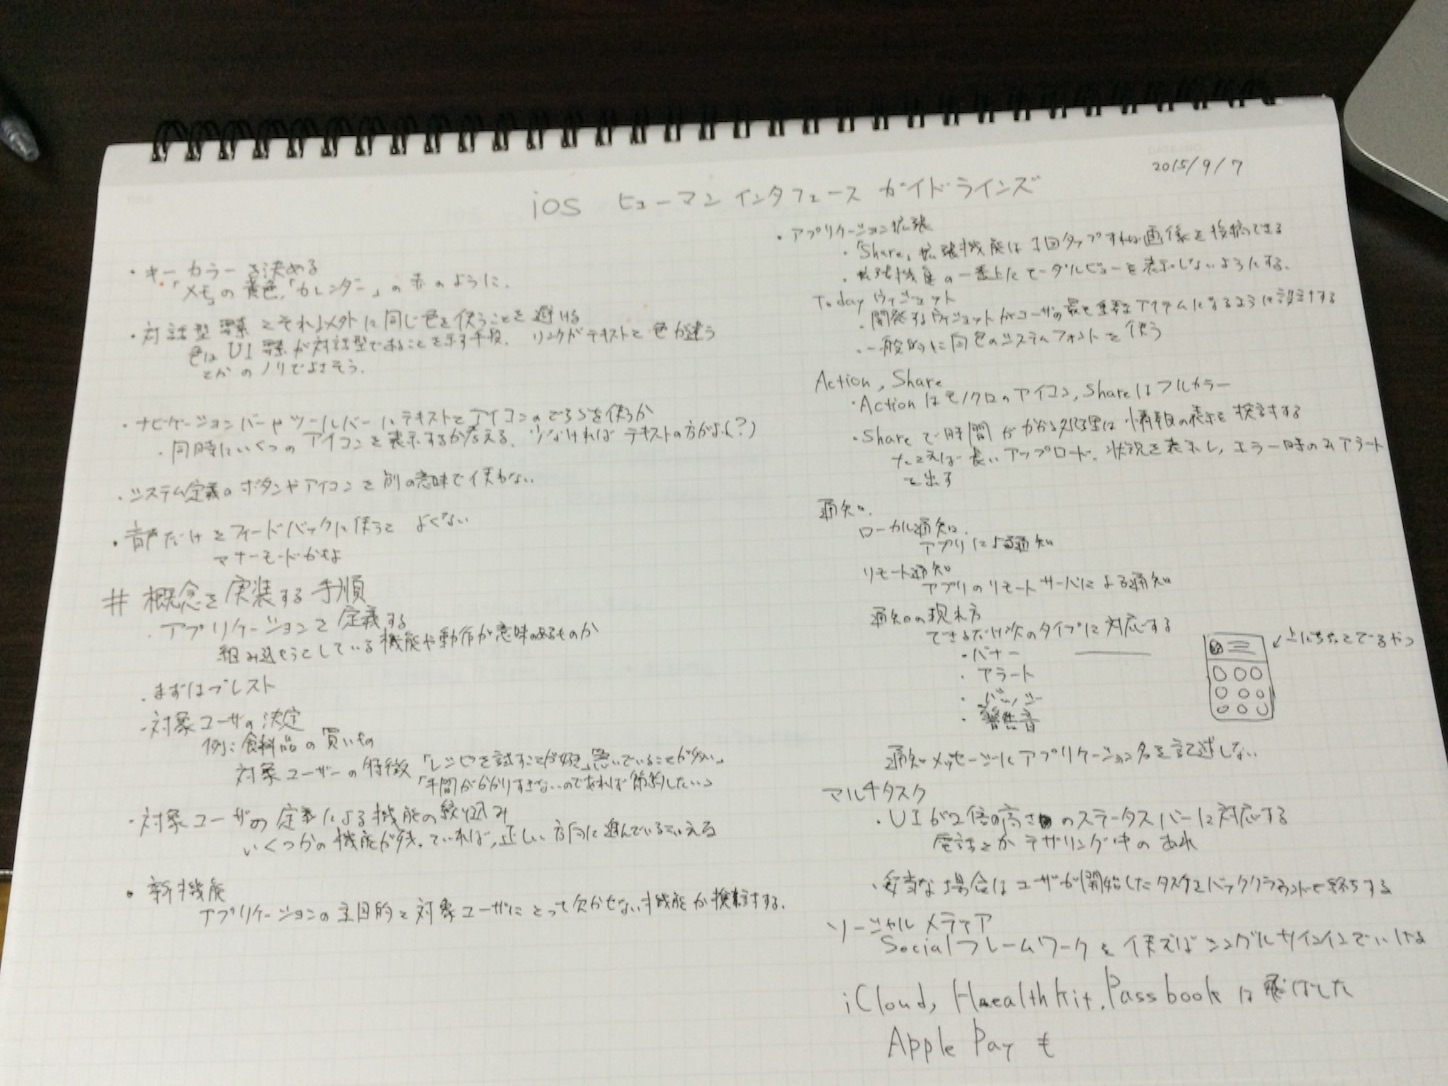 2015/9/7
iOS ヒューマンインタフェース ガイドラインズ
・キーカラーを決める
「メモ」の黄色,「カレンダー」の赤のように.
・対話型要素とそれ以外に同じ色を使うことを避ける
色はUI要素が対話型であることを示す手段. リンクがテキストと色が違う
とかのノリでよさそう.
・ナビゲーションバーやツールバーにテキストとアイコンのどちらを使うか
同時にいくつのアイコンを表示するか考える. 少なければテキストの方がよい(?)
・システム定義のボタンやアイコンを別の意味で使わない
・音声だけをフィードバックに使うと よくない
マナーモードかもよ
# 概念を実装する手順
・アプリケーションを定義する
組み込もうとしている機能や動作が意味のあるものか
・まずはブレスト
・対象ユーザの決定
例: 食料品の買いもの
対象ユーザーの特徴 「レシピを試すことが好き」「急いでいることが多い」
「手間がかかりすぎないのであれば節約したい」
・対象ユーザの定義による機能の絞り込み
いくつかの機能が残っていれば,正しい方向に進んでいるといえる
・新機能
アプリケーションの主目的と対象ユーザにとって欠かせない機能か検討する.
・アプリケーション拡張
・「Share」拡張機能は1回タップすれば画像を投稿できる
・拡張機能の一番上にモーダルビューを表示しないようにする.
Today ウィジェット
・開発するウィジェットがユーザの最も重要なアイテムになるように設計する
・一般的に同色のシステムフォントを使う
Action, Share
・Actionはモノクロのアイコン, Shareはフルカラー
・Shareで時間がかかる処理は 情報の表示を検討する
たとえば長いアップロード. 状況を表示し, エラー時のみアラート
を出す
通知.
ローカル通知.
アプリによる通知
リモート通知
アプリのリモートサーバによる通知
通知の現れ方
できるだけ次のタイプに対応する
・バナー
・アラート
・バッジ
・警告音
←上にちょこっとでるやつ
通知メッセージにアプリケーション名を記述しない
マルチタスク
・UIが2倍の高さのステータスバーに対応する
電話とかテザリング中のあれ
・妥当な場合はユーザが開始したタスクをバックグラウンドで終了する
ソーシャルメディア
Socialフレームワークを使えばシングルサインインでいける
iCloud, HealthKit, Passbookは飛ばした
Apple Pay も